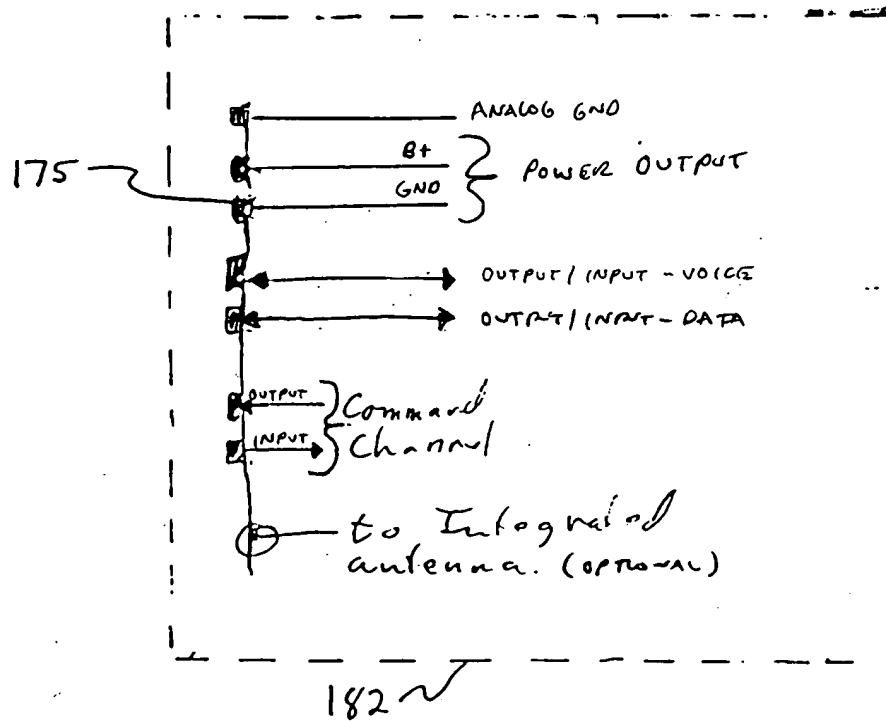 ANALOG GND
B+
POWER OUTPUT
175
GND
OUTPUT/INPUT - VOICE
OUTPUT/INPUT - DATA
OUTPUT
Command
INPUT
Channel
to Integrated
antenna. (OPTIONAL)
182